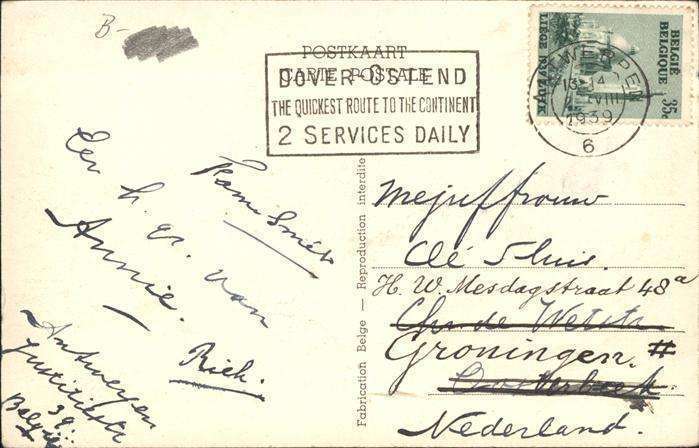 B-
POSTKAART
CARTE POSTALE
DOVER-OSTEND
THE QUICKEST ROUTE TO THE CONTINENT
2 SERVICES DAILY
BELGIË
BELGIQUE
35c
ANTWERPEN
13-14
VIII
1939
6
Een h. gr. van
Annie.
Riek.
Antwerpen
39.
België
Fabrication Belge — Reproduction interdite
Mejuffrouw
Clé Sluis.
H. W. Mesdagstraat 48a
Groningen. #
Oosterbeek.
Nederland.